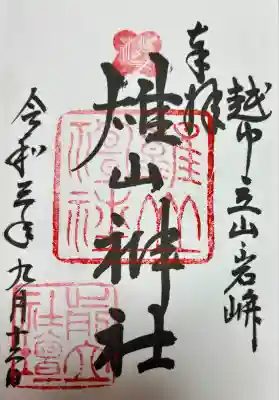 越中立山岩峅
奉拝
雄山神社
令和三年九月十六日